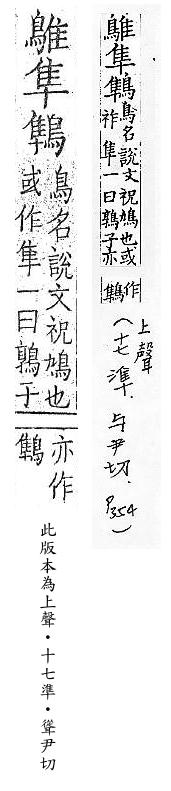 鵻隼鶽
鳥名說文祝鳩也或
作隼一曰鶉子亦
作
鶽
上聲
(十七準.与尹切.P354)
鵻隼鶽
鳥名說文祝鳩也
或作隼一曰鶉子
亦作
鶽
此版本為上聲・十七準・聳尹切